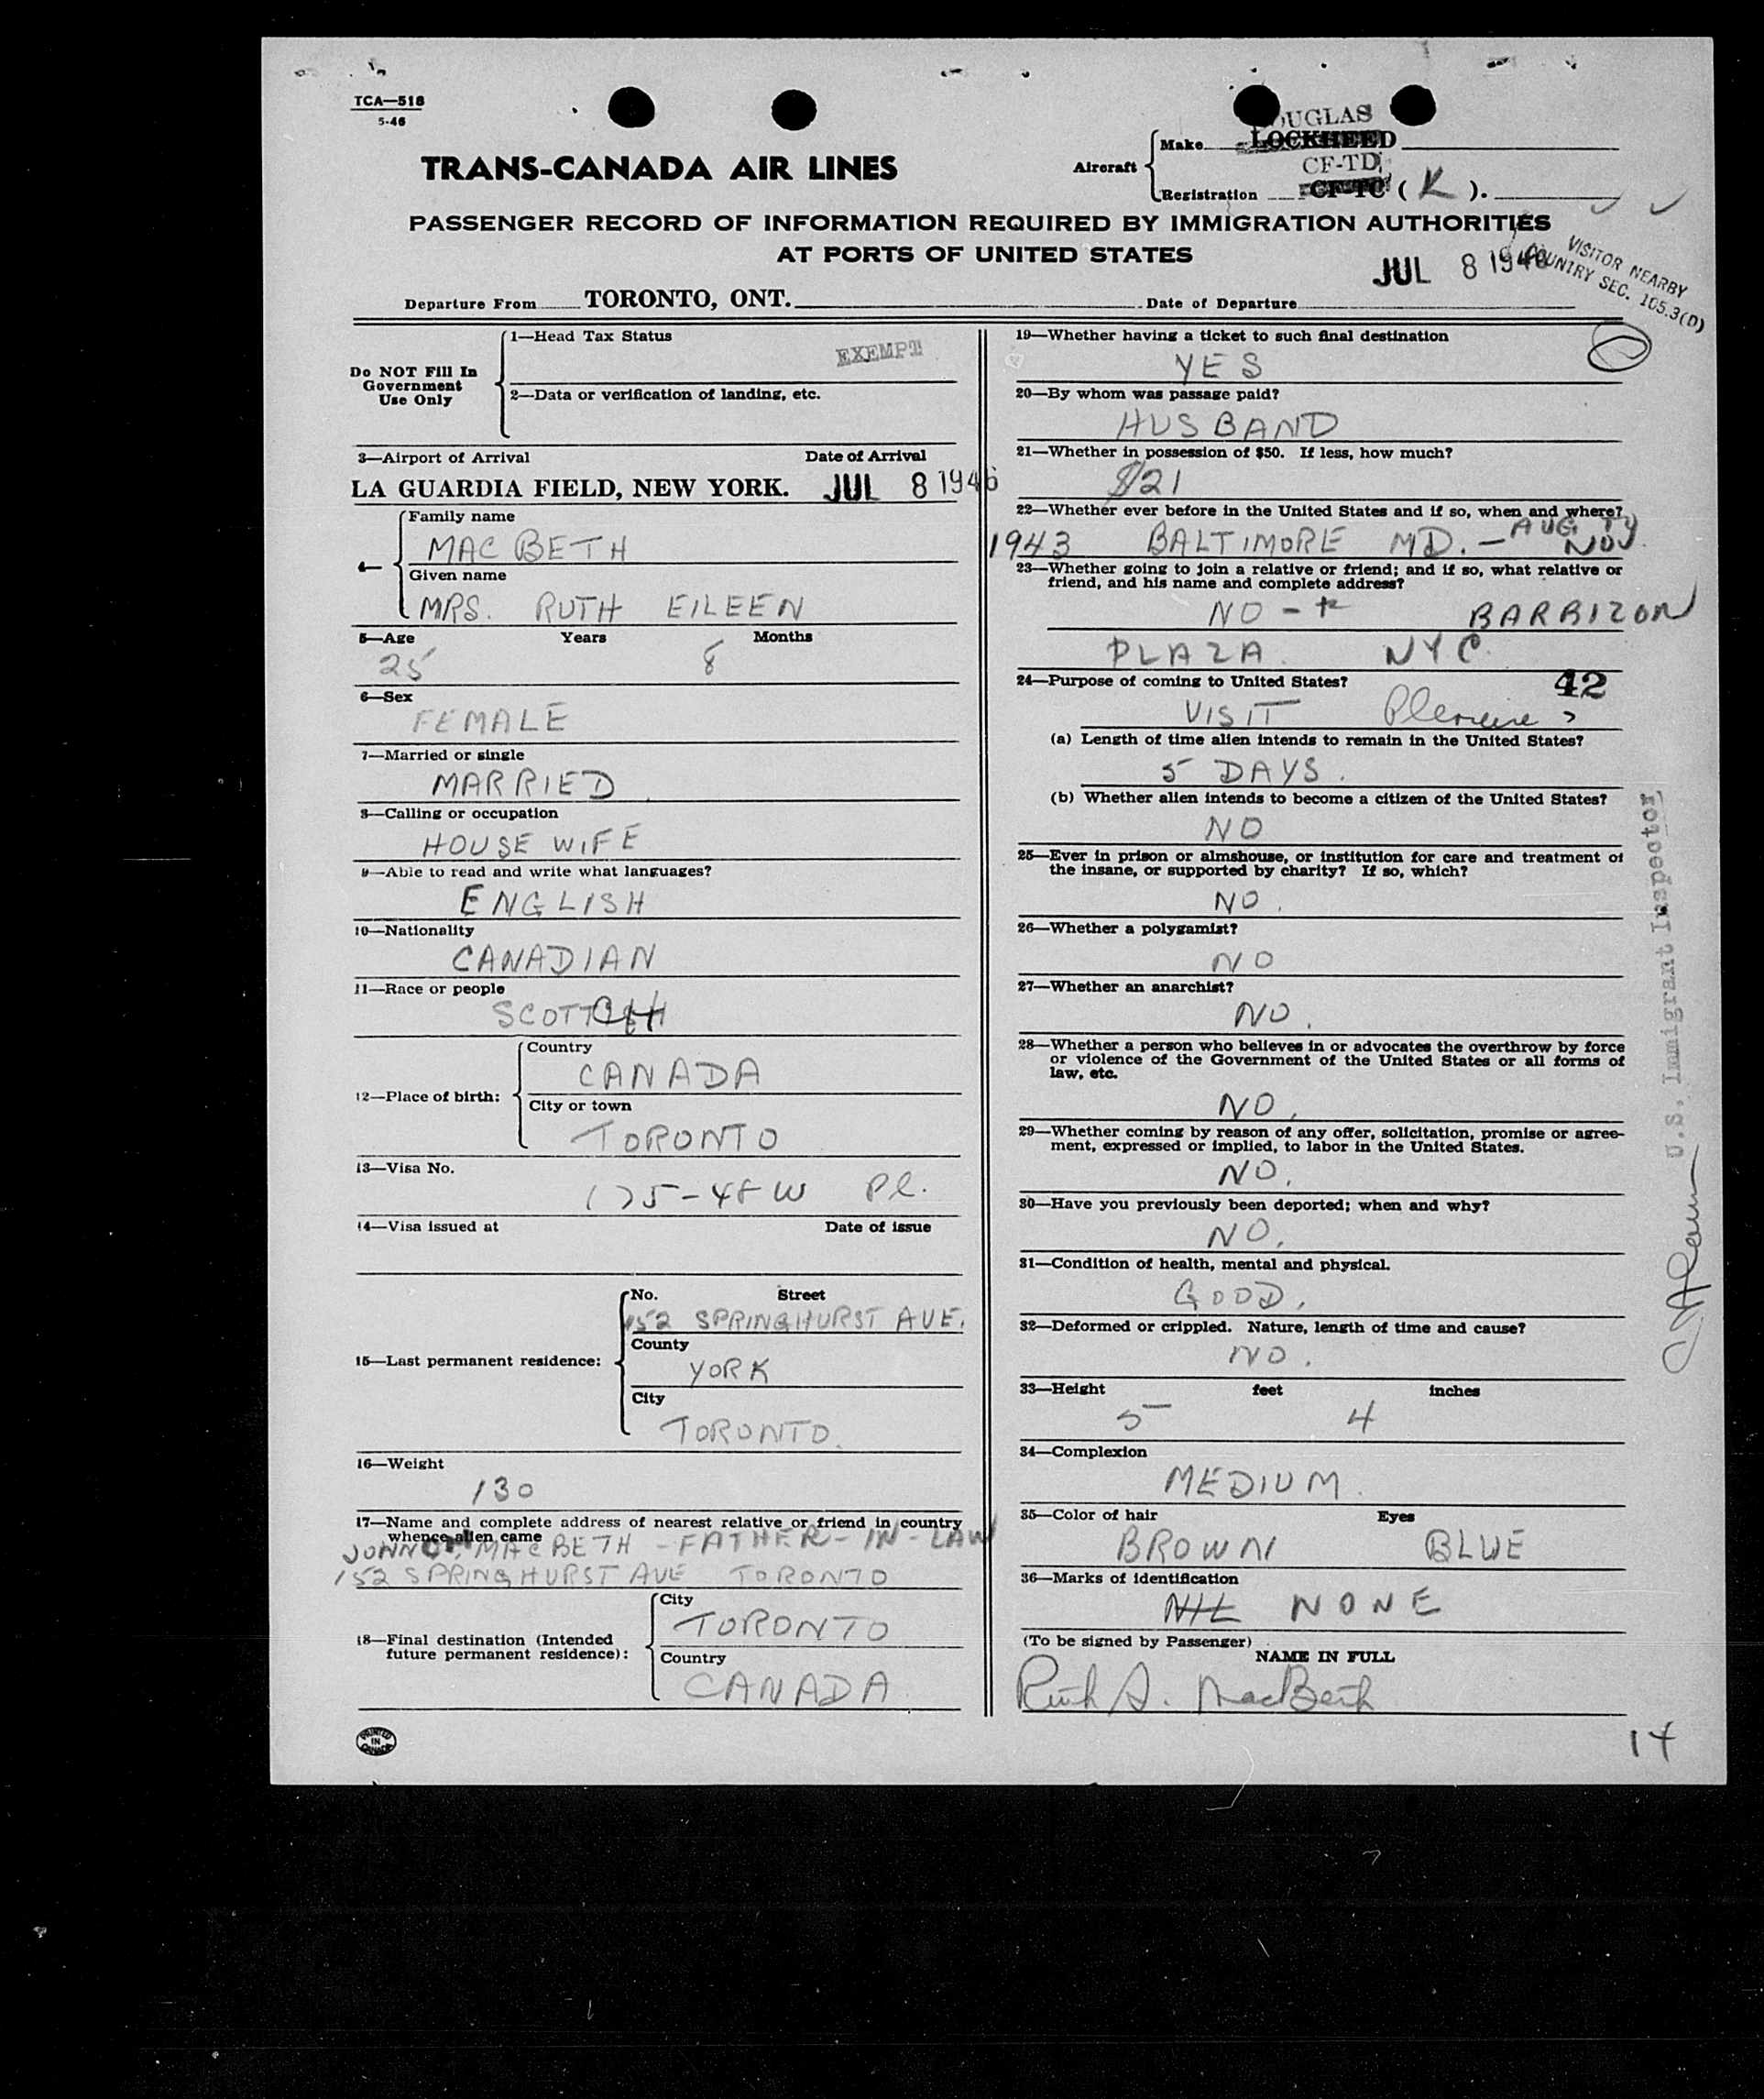 TCA—518
5-46
DOUGLAS
Make LOCKHEED
Aircraft
CF-TD
Registration CF-TC ( K ).
TRANS-CANADA AIR LINES
PASSENGER RECORD OF INFORMATION REQUIRED BY IMMIGRATION AUTHORITIES
AT PORTS OF UNITED STATES
JUL 8 1946
VISITOR NEARBY
COUNTRY SEC. 105.3(D)
Departure From TORONTO, ONT. Date of Departure
Do NOT Fill In
Government
Use Only
1—Head Tax Status
EXEMPT
2—Data or verification of landing, etc.
3—Airport of Arrival Date of Arrival
LA GUARDIA FIELD, NEW YORK. JUL 8 1946
4—
Family name
MAC BETH
Given name
MRS. RUTH EILEEN
5—Age Years Months
25 8
6—Sex
FEMALE
7—Married or single
MARRIED
8—Calling or occupation
HOUSE WIFE
9—Able to read and write what languages?
ENGLISH
10—Nationality
CANADIAN
11—Race or people
SCOTTISH
12—Place of birth:
Country
CANADA
City or town
TORONTO
13—Visa No.
175-48 W Pl.
14—Visa issued at Date of issue
15—Last permanent residence:
No. Street
152 SPRINGHURST AVE.
County
YORK
City
TORONTO.
16—Weight
130
17—Name and complete address of nearest relative or friend in country
whence alien came
JOHN MACBETH - FATHER-IN-LAW
152 SPRINGHURST AVE TORONTO
18—Final destination (Intended
future permanent residence):
City
TORONTO
Country
CANADA
PRINTED
IN
CANADA
19—Whether having a ticket to such final destination
YES
20—By whom was passage paid?
HUSBAND
21—Whether in possession of $50. If less, how much?
$121
22—Whether ever before in the United States and if so, when and where?
1943 BALTIMORE MD. - AUG TO NOV
23—Whether going to join a relative or friend; and if so, what relative or
friend, and his name and complete address?
NO - BARBIZON
PLAZA NYC
24—Purpose of coming to United States? 42
VISIT Pleasure
(a) Length of time alien intends to remain in the United States?
5 DAYS.
(b) Whether alien intends to become a citizen of the United States?
NO
25—Ever in prison or almshouse, or institution for care and treatment of
the insane, or supported by charity? If so, which?
NO.
26—Whether a polygamist?
NO
27—Whether an anarchist?
NO.
28—Whether a person who believes in or advocates the overthrow by force
or violence of the Government of the United States or all forms of
law, etc.
NO.
29—Whether coming by reason of any offer, solicitation, promise or agree-
ment, expressed or implied, to labor in the United States.
NO.
30—Have you previously been deported; when and why?
NO.
31—Condition of health, mental and physical.
GOOD.
32—Deformed or crippled. Nature, length of time and cause?
NO.
33—Height feet inches
5 4
34—Complexion
MEDIUM.
35—Color of hair Eyes
BROWN BLUE
36—Marks of identification
NIL NONE
(To be signed by Passenger)
NAME IN FULL
Ruth MacBeth
U.S. Immigrant Inspector
14